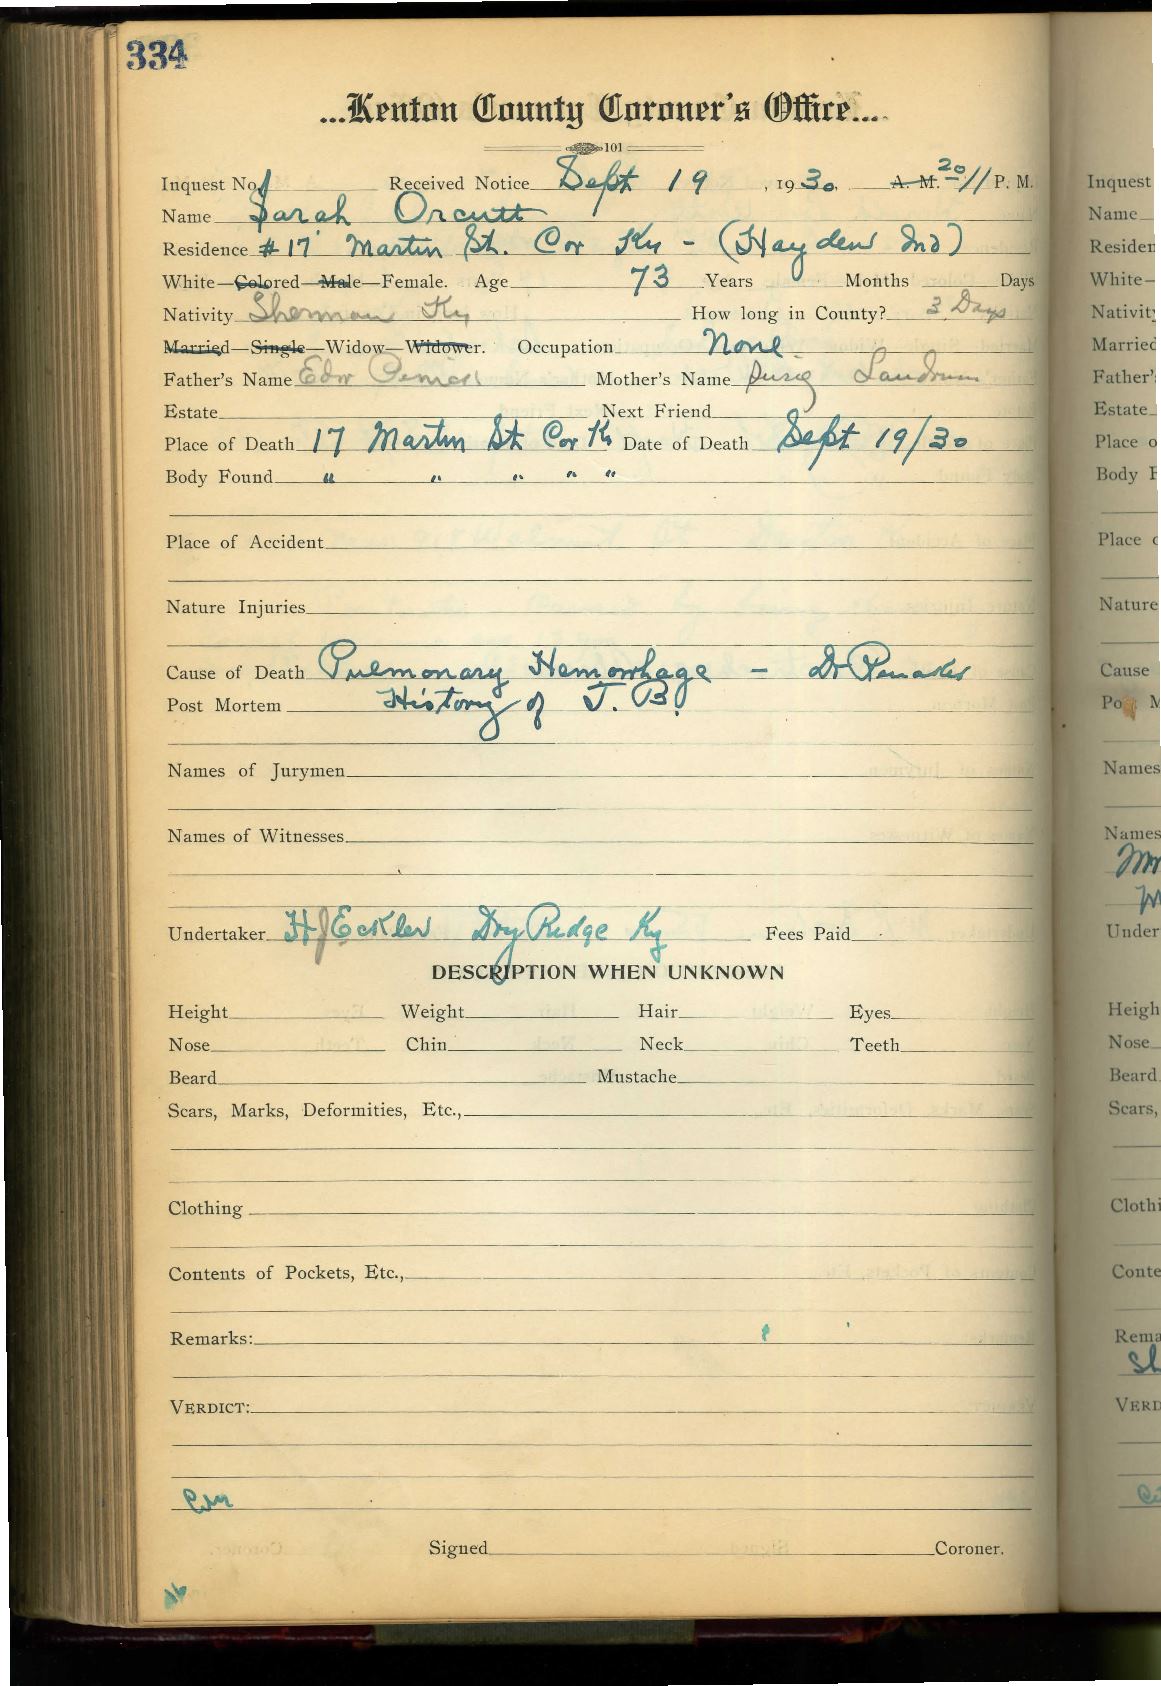 334
...Kenton County Coroner's Office...
101
Inquest No. Received Notice Sept 19, 1930. A. M. 20/11 P. M.
Name Sarah Orcutt
Residence #17 Martin St. Cov Ky - (Hayden Ind)
White—Colored—Male—Female. Age 73 Years Months Days
Nativity Sherman Ky How long in County? 3 Days
Married—Single—Widow—Widower. Occupation None
Father's Name Edw Mother's Name Landrum
Estate Next Friend
Place of Death 17 Martin St Cov Ky Date of Death Sept 19/30
Body Found " " " " "
Place of Accident
Nature Injuries
Cause of Death Pulmonary Hemorrhage - Dr
Post Mortem History of T.B.
Names of Jurymen
Names of Witnesses
Undertaker HJ Eckler Dry Ridge Ky Fees Paid
DESCRIPTION WHEN UNKNOWN
Height Weight Hair Eyes
Nose Chin Neck Teeth
Beard Mustache
Scars, Marks, Deformities, Etc.,
Clothing
Contents of Pockets, Etc.,
Remarks:
VERDICT:
Signed Coroner.
Inquest
Name
Residen
White—
Nativity
Married
Father'
Estate
Place o
Body F
Place o
Nature
Cause
Post M
Names
Names
Under
Heigh
Nose
Beard
Scars,
Clothi
Conte
Rema
VERD